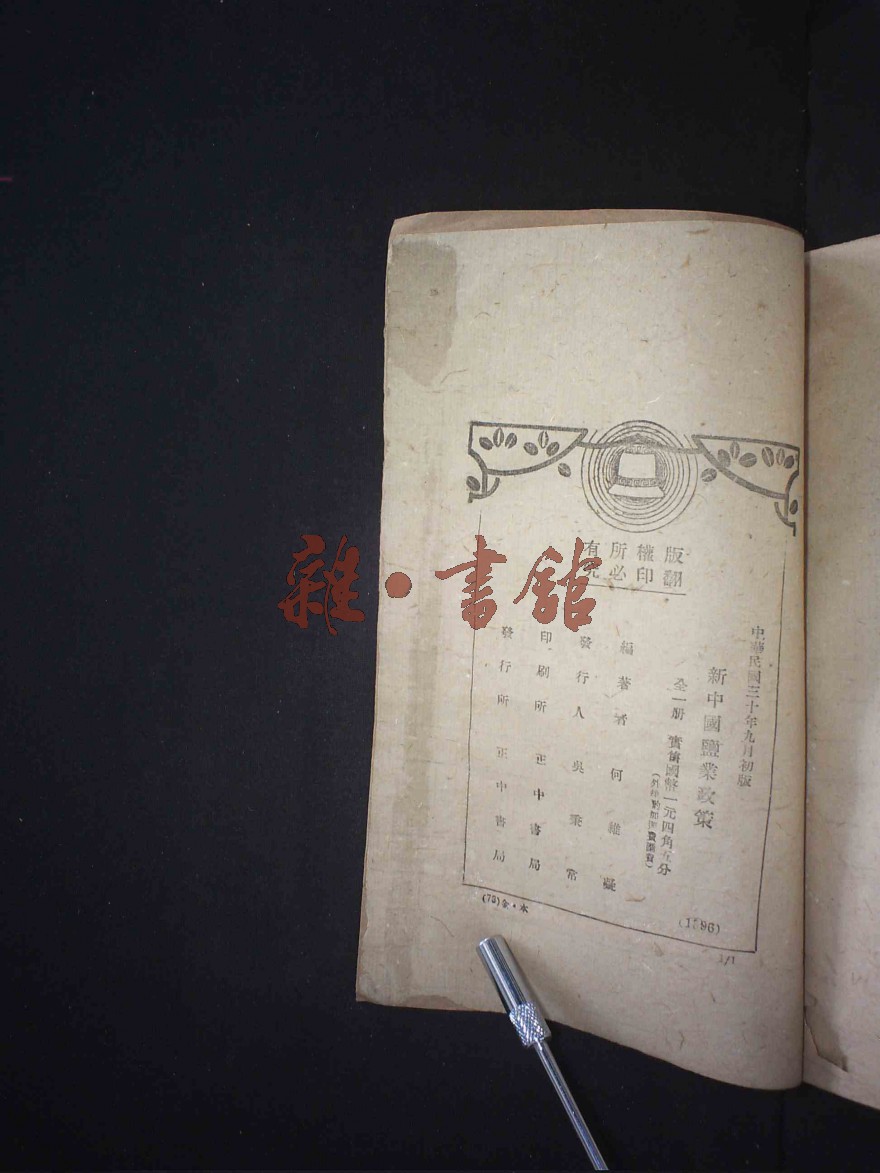 版權所有
翻印必究
中華民國三十年九月初版
新中國鹽業政策
全一册 實價國幣一元四角五分
(外埠酌加運費匯費)
編著者 何維凝
發行人 吳秉常
印刷所 正中書局
發行所 正中書局
(1596)
(73)金·木
1/1
雜·書館